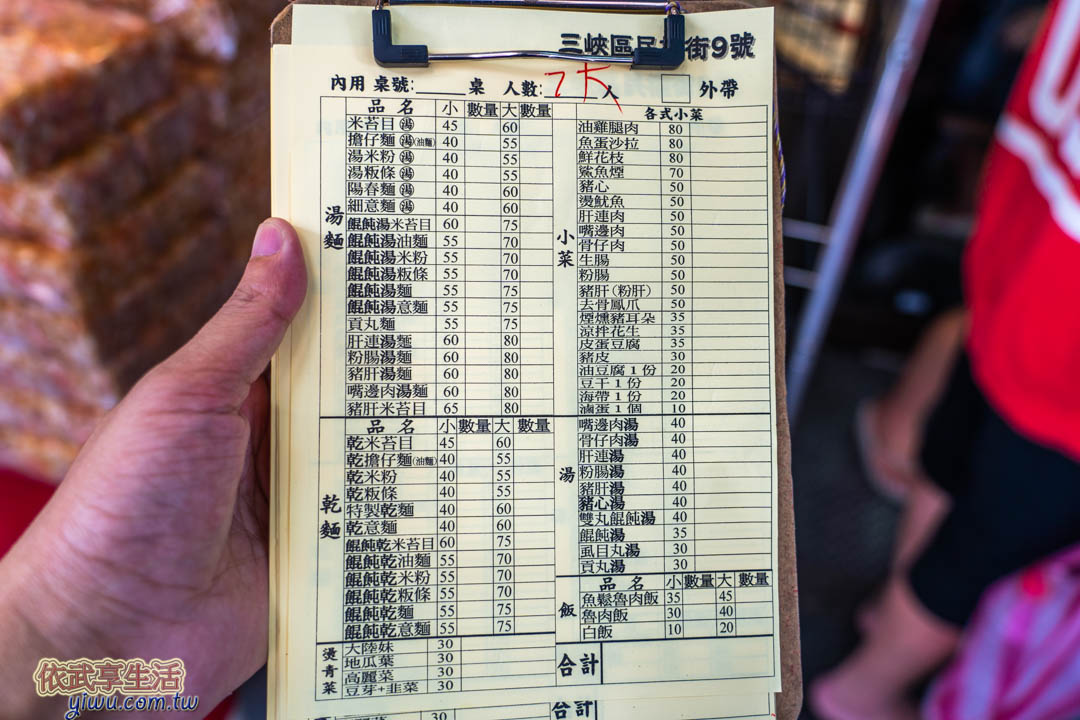 三峽區民 街9號
內用 桌號: 桌 人數: 人 外帶
湯麵
品名 小 數量 大 數量
米苔目 湯 45 60
擔仔麵 湯(油麵) 40 55
湯米粉 湯 40 55
湯粄條 湯 40 55
陽春麵 湯 40 60
細意麵 湯 40 60
餛飩湯米苔目 60 75
餛飩湯油麵 55 70
餛飩湯米粉 55 70
餛飩湯粄條 55 70
餛飩湯麵 55 75
餛飩湯意麵 55 75
貢丸麵 55 75
肝連湯麵 60 80
粉腸湯麵 60 80
豬肝湯麵 60 80
嘴邊肉湯麵 60 80
豬肝米苔目 65 80
乾麵
品名 小 數量 大 數量
乾米苔目 45 60
乾擔仔麵(油麵) 40 55
乾米粉 40 55
乾粄條 40 55
特製乾麵 40 60
乾意麵 40 60
餛飩乾米苔目 60 75
餛飩乾油麵 55 70
餛飩乾米粉 55 70
餛飩乾粄條 55 70
餛飩乾麵 55 75
餛飩乾意麵 55 75
燙青菜
大陸妹 30
地瓜葉 30
高麗菜 30
豆芽+韭菜 30
小菜
各式小菜
油雞腿肉 80
魚蛋沙拉 80
鮮花枝 80
鯊魚煙 70
豬心 50
燙魷魚 50
肝連肉 50
嘴邊肉 50
骨仔肉 50
生腸 50
粉腸 50
豬肝(粉肝) 50
去骨鳳爪 50
煙燻豬耳朵 35
涼拌花生 35
皮蛋豆腐 35
豬皮 30
油豆腐1份 20
豆干1份 20
海帶1份 20
滷蛋1個 10
湯
嘴邊肉湯 40
骨仔肉湯 40
肝連湯 40
粉腸湯 40
豬肝湯 40
豬心湯 40
雙丸餛飩湯 40
餛飩湯 35
虱目丸湯 30
貢丸湯 30
飯
品名 小 數量 大 數量
魚鬆魯肉飯 35 45
魯肉飯 30 40
白飯 10 20
合計
30
合計
依武享生活
yiwu.com.tw